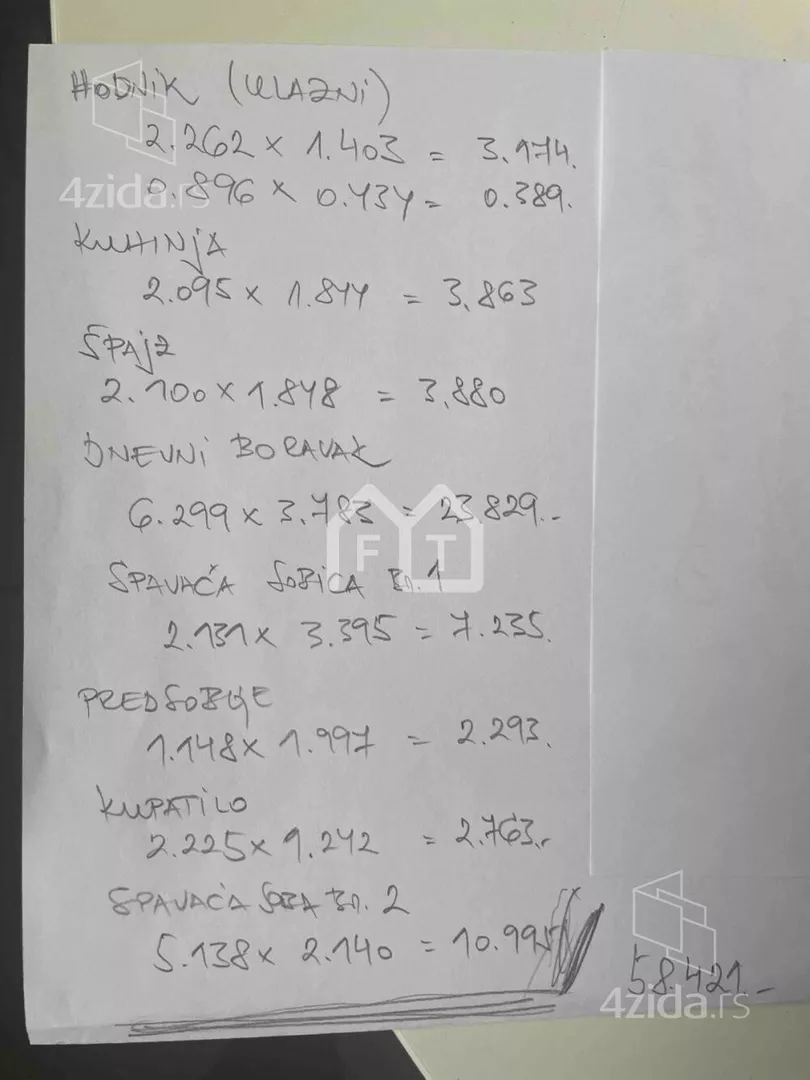 HODNIK (ULAZNI)
2.262 x 1.403 = 3.174.
4zida.rs
0.896 x 0.434 = 0.389.
KUHINJA
2.095 x 1.844 = 3,863
ŠPAJZ
2.100 x 1.848 = 3,880
DNEVNI BORAVAK
6.299 x 3.783 = 23829.-
FT
SPAVAĆA SOBICA BR. 1
2.131 x 3.395 = 7.235.
PREDSOBLJE
1.148 x 1.997 = 2.293.
KUPATILO
2.225 x 1.242 = 2.763.-
SPAVAĆA SOBA BR. 2
5.138 x 2.140 = 10.995
58.421.-
4zida.rs